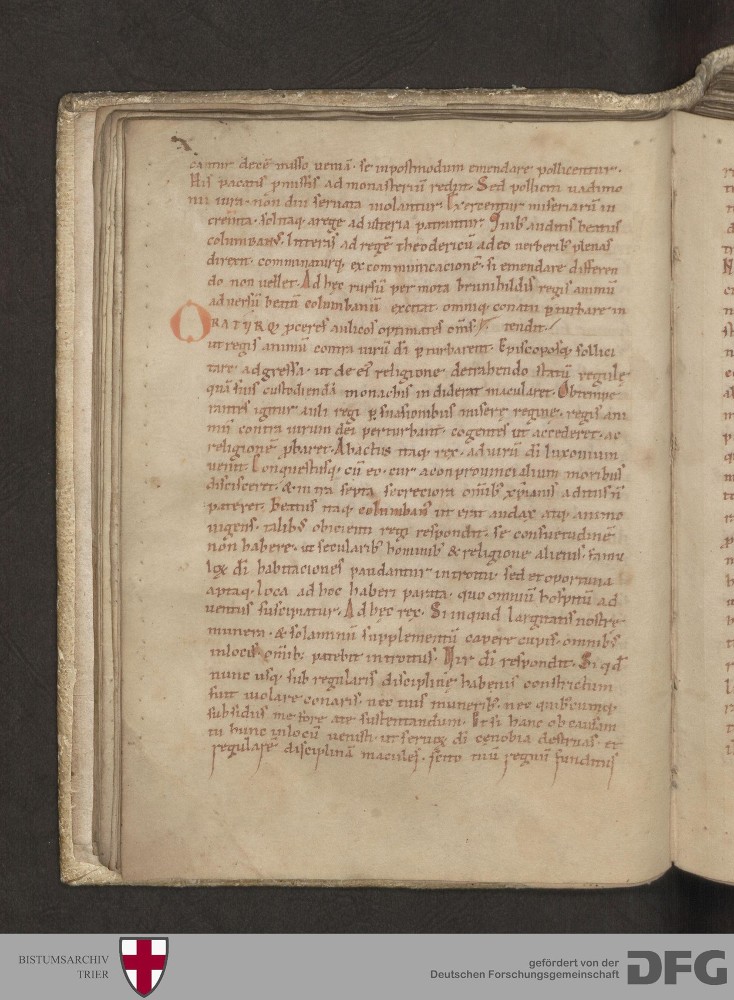 cantur de cōmisso veniā. se inpostmodum emendare pollicentur.
His pacatis pmissis ad monasteriū redit. Sed polliciti vadimo
nii iura. non diu servata violantur. Exercentur miseriarū in
crem̄ta. solitaq; a rege adulteria patrantur. Quib; auditis beatus
columban;. litteris ad regē theodericū adeo verberib; plenas
direxit. comminaturq; excommunicacionē. si emendare differen
do non vellet. Ad hęc rursū permota brunihildis regis animū
adversū beatū columbanū excitat. omniq; conatu pturbare in
ORATURQ; pceres aulicos optimates om̄s / tendit. /
ut regis animū contra virū dī pturbarent. Episcoposq; sollici
tare adgressa. ut de eī religione detrahendo statū regulę
quā suis custodiendā monachis indiderat macularet. Obtempe
rantes igitur auli regi psuasionibus miserę reginę. regis ani
mū contra virum dei perturbant. cogentes ut accederet. ac
religionē pbaret. Abactus itaq; rex. ad virū dī luxovium
venit. Conquestusq; cū eo. cur a conprovincialium moribus
discisceret. & intra septa secreciora om̄ib; xpianis aditus n̄
pateret. Beatus itaq; columban; ut erat audax atq; animo
vigens. talib; obicienti regi respondit. se consuetudinē
non habere. ut secularib; hominib; & religione alienis. famu
lorū dī habitaciones pandantur introitu. sed et oportuna
aptaq; loca ad hoc habere parata. quo omniū hospitū ad
ventus suscipiatur. Ad hęc rex. Si inquid largitatis nostre
munera. & solaminū supplementū capere cupis. omnib;
in locis om̄ib; patebit introitus. Vir dī respondit. Si qd
nunc usq; sub regularis disciplinę habenis constrictum
fuit violare conaris. nec tuis munerib;. nec quibuscumq;
subsidiis me fore a te sustentandum. Et si hanc ob causam
tu hunc in locū venisti. ut servorū dī cenobia destruas. et
regularē disciplinā macules. scito tuū regnū funditus
BISTUMSARCHIV
TRIER
gefördert von der
Deutschen Forschungsgemeinschaft
DFG